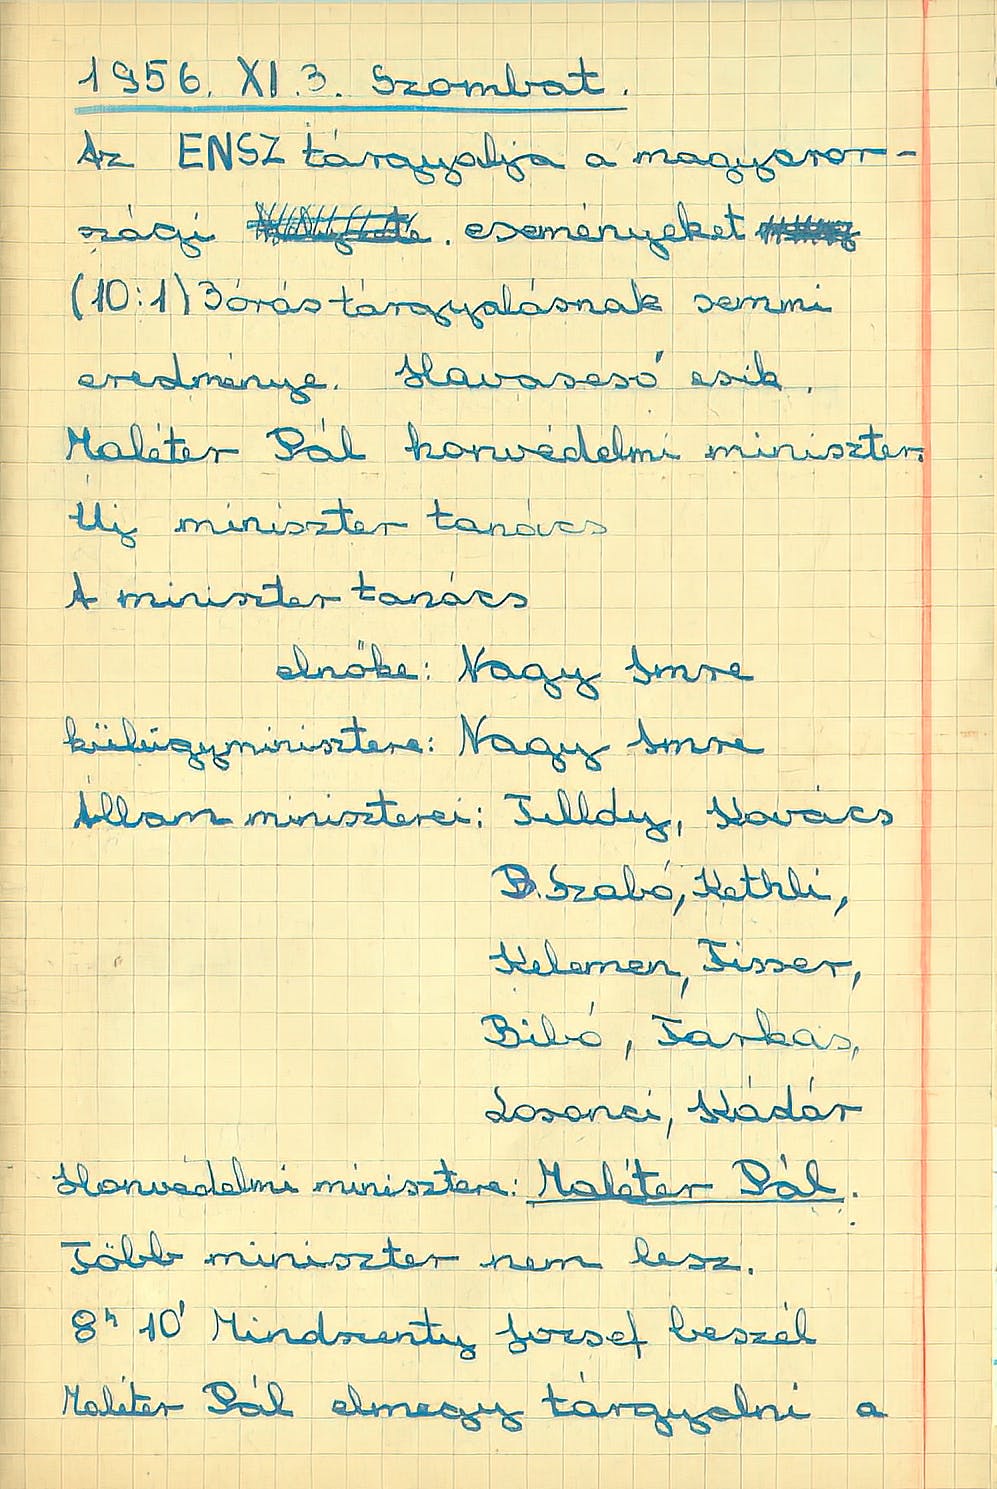 1956. XI.3. Szombat.
Az ENSZ tárgyalja a magyaror-
szági eseményeket
(10:1) 3 órás tárgyalásnak semmi
eredménye. Havaseső esik.
Maléter Pál honvédelmi miniszter.
Új miniszter tanács
A miniszter tanács
elnöke: Nagy Imre
külügyminisztere: Nagy Imre
Állam miniszterei: Tilldy, Kovács
B. Szabó, Kethli,
Kelemen, Fisser,
Bibó, Farkas,
Losonci, Kádár
Honvédelmi minisztere: Maléter Pál.
Több miniszter nem lesz.
8h 10' Mindszenty József beszél
Maléter Pál elmegy tárgyalni a